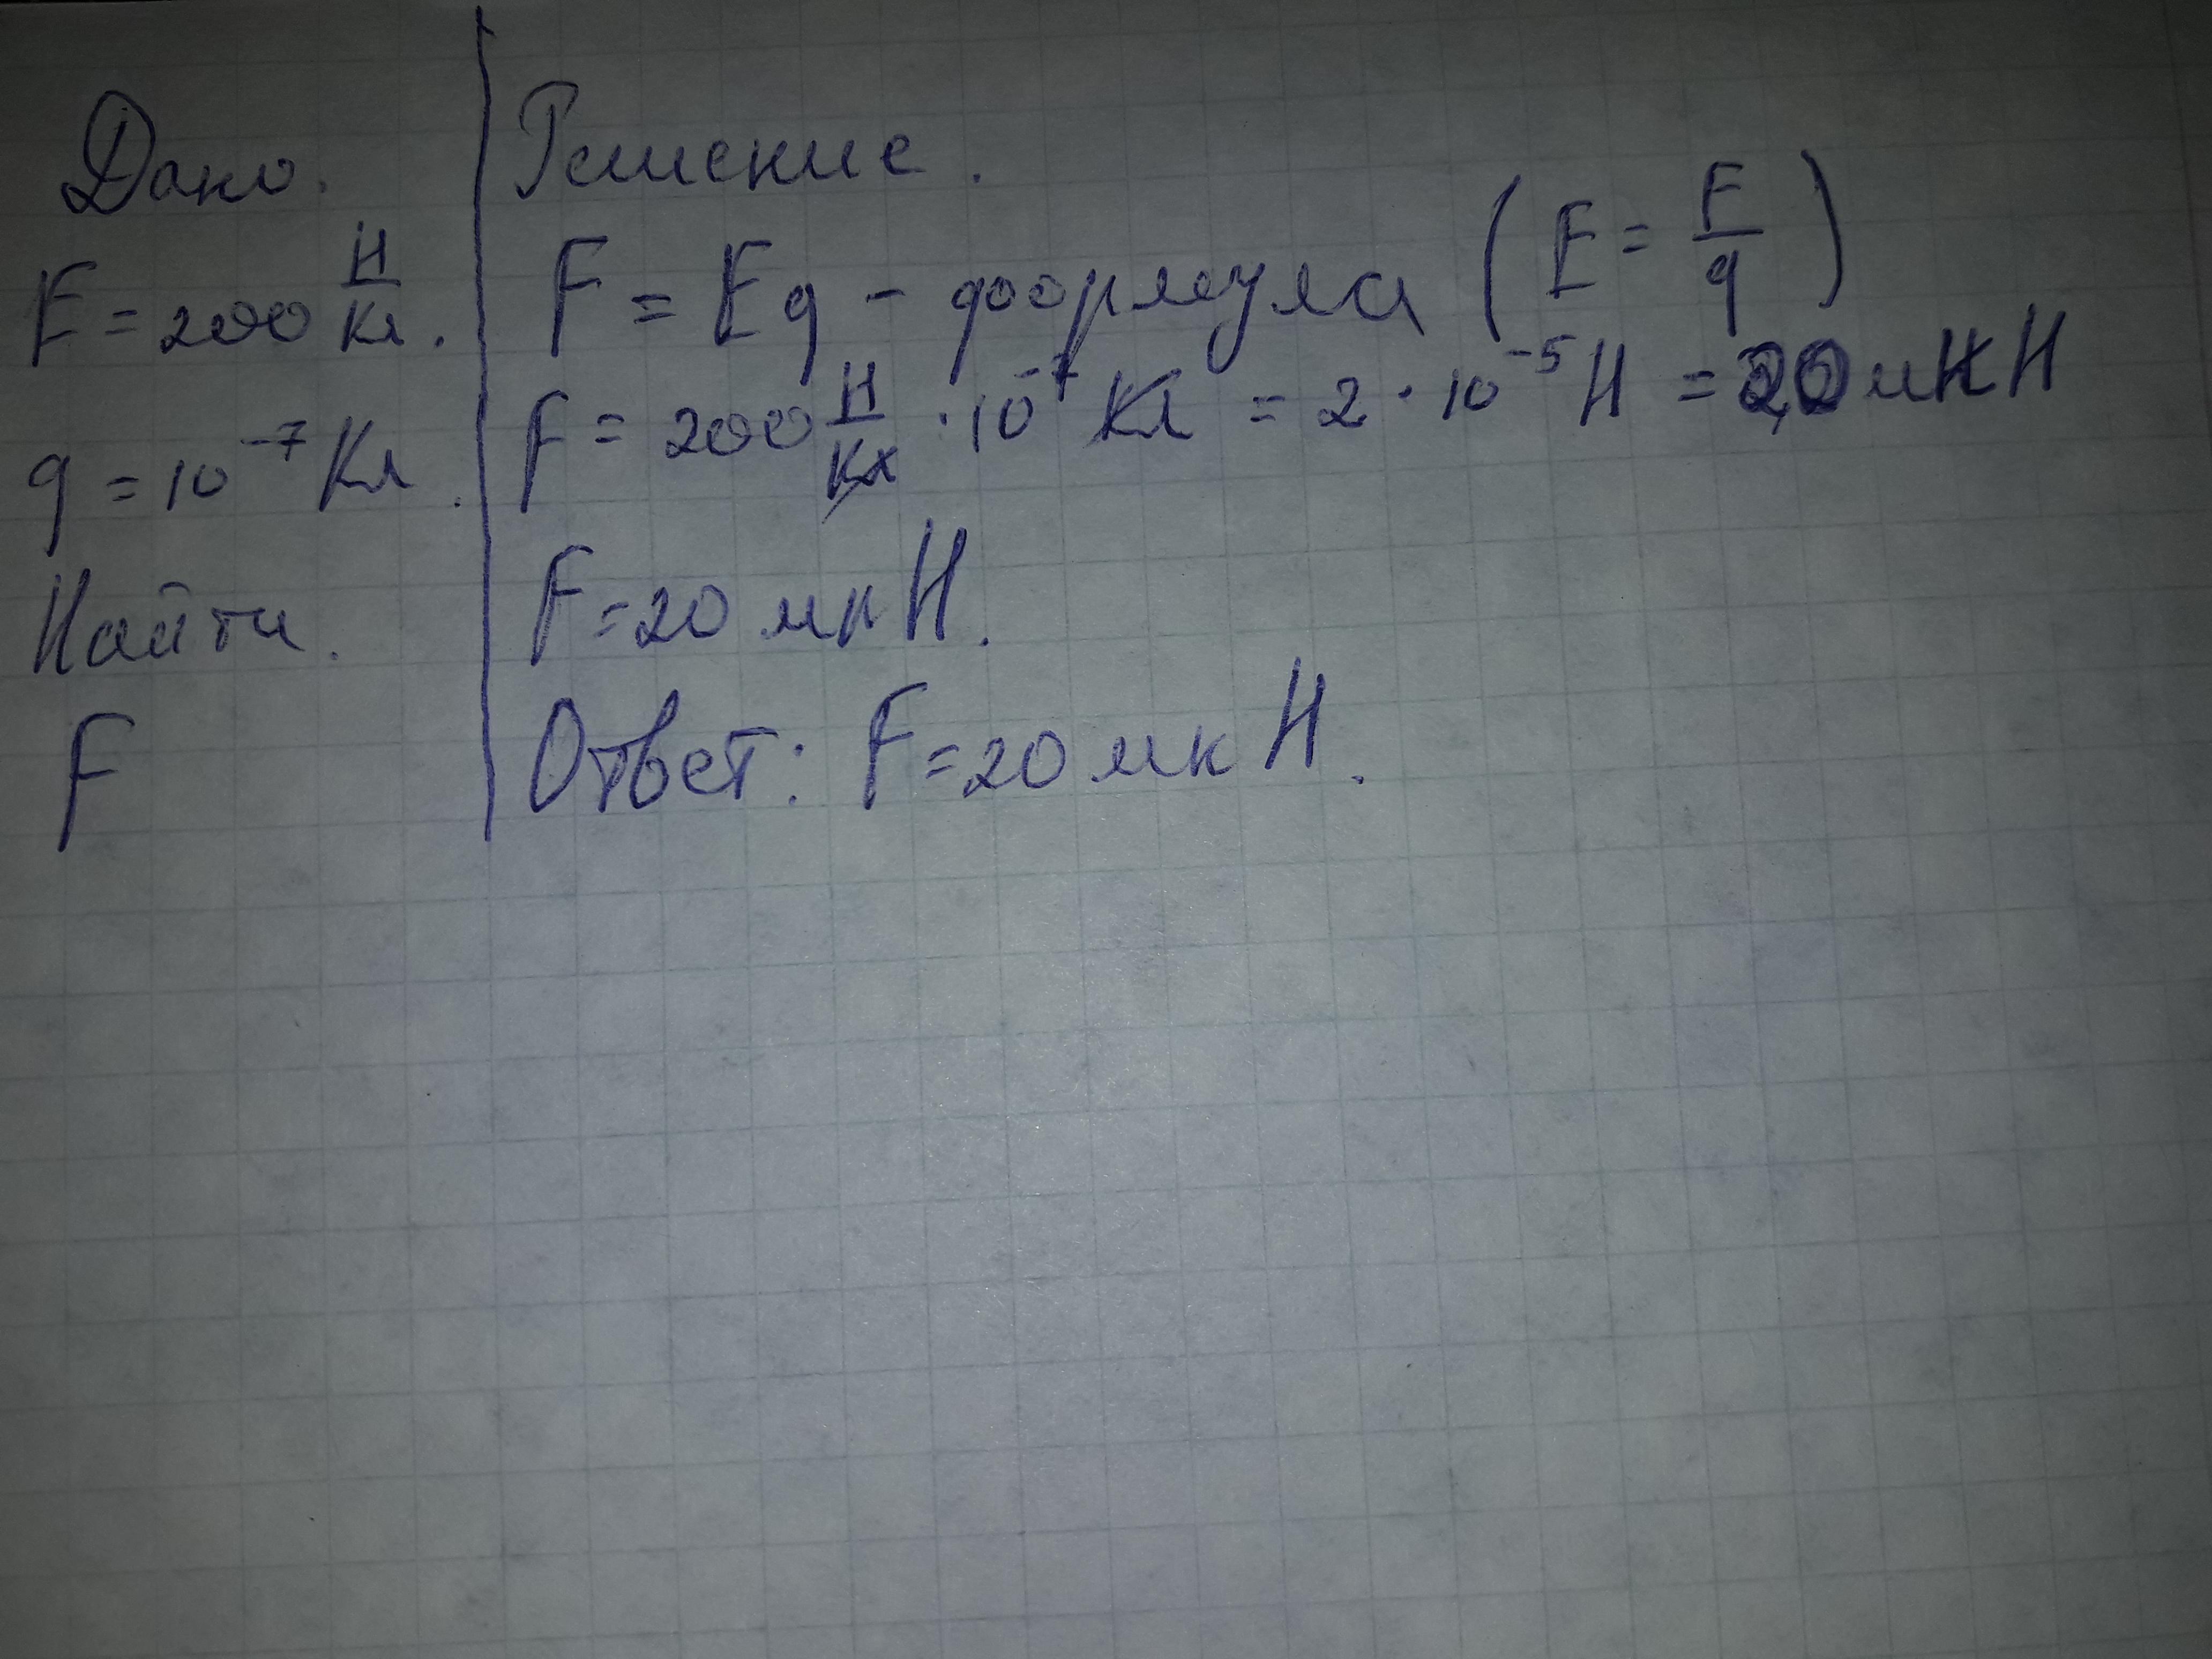 Дано.
E = 200 Н/Кл.
q = 10⁻⁷ Кл.
Найти.
F
Решение.
F = Eq - формула (E = F/q)
F = 200 Н/Кл · 10⁻⁷ Кл = 2 · 10⁻⁵ Н = 20 мкН
F = 20 мкН.
Ответ: F = 20 мкН.